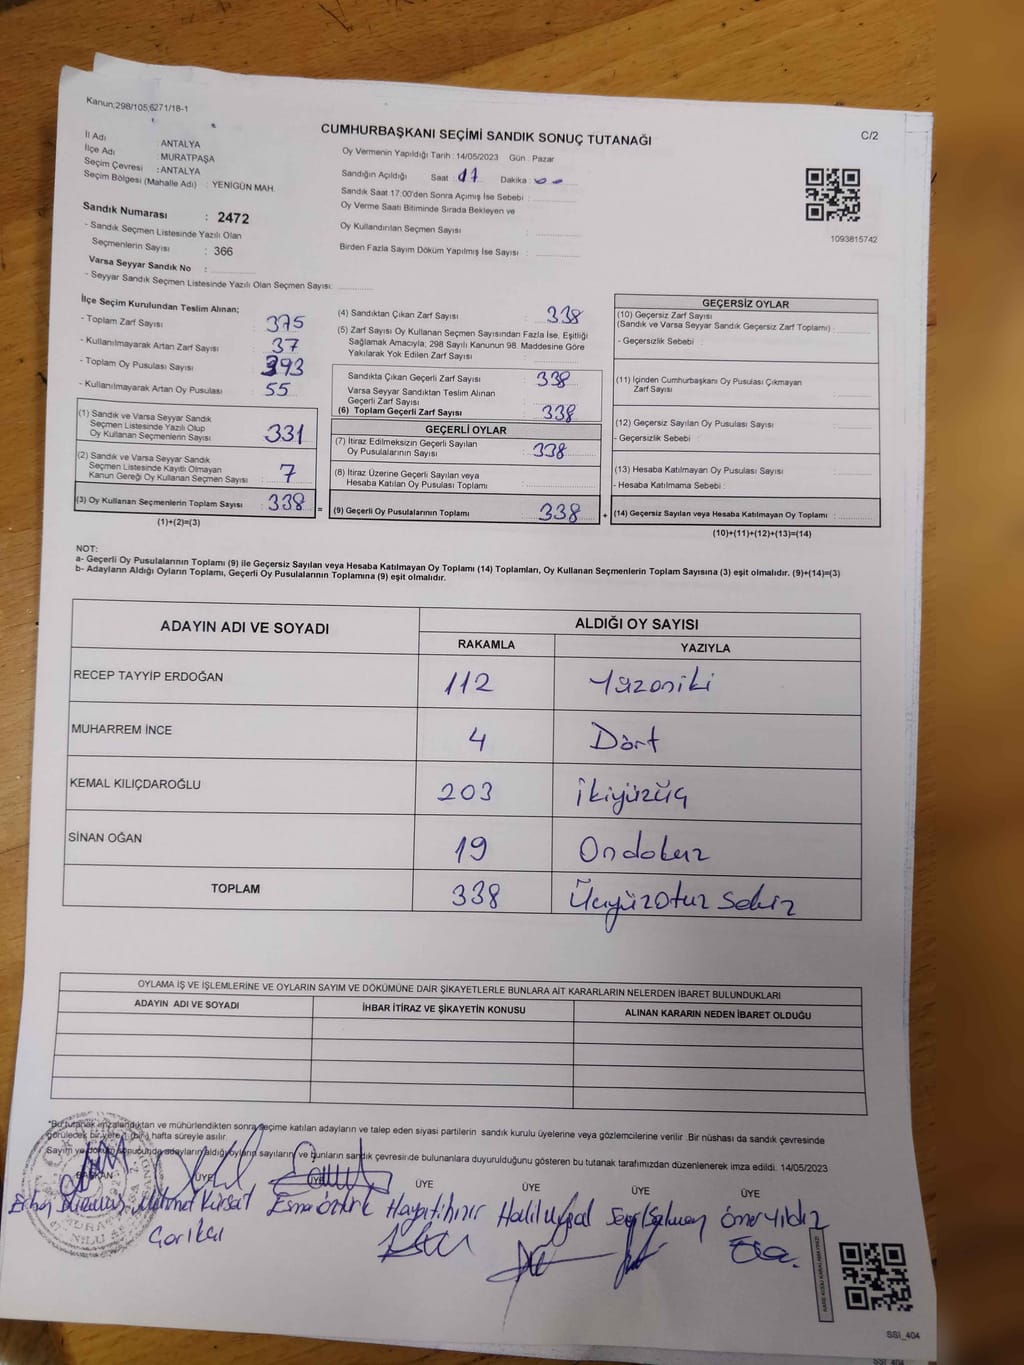 Kanun;298/105,6271/18-1
CUMHURBAŞKANI SEÇİMİ SANDIK SONUÇ TUTANAĞI
C/2
İl Adı : ANTALYA
İlçe Adı : MURATPAŞA
Seçim Çevresi : ANTALYA
Seçim Bölgesi (Mahalle Adı) : YENİGÜN MAH.
Sandık Numarası : 2472
- Sandık Seçmen Listesinde Yazılı Olan
Seçmenlerin Sayısı : 366
Varsa Seyyar Sandık No :
- Seyyar Sandık Seçmen Listesinde Yazılı Olan Seçmen Sayısı:
Oy Vermenin Yapıldığı Tarih : 14/05/2023 Gün : Pazar
Sandığın Açıldığı Saat : 17 Dakika :
Sandık Saat 17:00'den Sonra Açımış İse Sebebi :
Oy Verme Saati Bitiminde Sırada Bekleyen ve
Oy Kullandırılan Seçmen Sayısı :
Birden Fazla Sayım Döküm Yapılmış İse Sayısı :
1093815742
İlçe Seçim Kurulundan Teslim Alınan;
- Toplam Zarf Sayısı : 375
- Kullanılmayarak Artan Zarf Sayısı : 37
- Toplam Oy Pusulası Sayısı : 393
- Kullanılmayarak Artan Oy Pusulası : 55
(1) Sandık ve Varsa Seyyar Sandık
Seçmen Listesinde Yazılı Olup
Oy Kullanan Seçmenlerin Sayısı : 331
(2) Sandık ve Varsa Seyyar Sandık
Seçmen Listesinde Kayıtlı Olmayan
Kanun Gereği Oy Kullanan Seçmen Sayısı : 7
(3) Oy Kullanan Seçmenlerin Toplam Sayısı : 338 =
(1)+(2)=(3)
(4) Sandıktan Çıkan Zarf Sayısı : 338
(5) Zarf Sayısı Oy Kullanan Seçmen Sayısından Fazla İse, Eşitliği
Sağlamak Amacıyla; 298 Sayılı Kanunun 98. Maddesine Göre
Yakılarak Yok Edilen Zarf Sayısı :
Sandıkta Çıkan Geçerli Zarf Sayısı : 338
Varsa Seyyar Sandıktan Teslim Alınan
Geçerli Zarf Sayısı :
(6) Toplam Geçerli Zarf Sayısı : 338
GEÇERLİ OYLAR
(7) İtiraz Edilmeksizin Geçerli Sayılan
Oy Pusulalarının Sayısı : 338
(8) İtiraz Üzerine Geçerli Sayılan veya
Hesaba Katılan Oy Pusulası Toplamı :
(9) Geçerli Oy Pusulalarının Toplamı : 338 +
GEÇERSİZ OYLAR
(10) Geçersiz Zarf Sayısı
(Sandık ve Varsa Seyyar Sandık Geçersiz Zarf Toplamı) :
- Geçersizlik Sebebi :
(11) İçinden Cumhurbaşkanı Oy Pusulası Çıkmayan
Zarf Sayısı :
(12) Geçersiz Sayılan Oy Pusulası Sayısı :
- Geçersizlik Sebebi :
(13) Hesaba Katılmayan Oy Pusulası Sayısı :
- Hesaba Katılmama Sebebi :
(14) Geçersiz Sayılan veya Hesaba Katılmayan Oy Toplamı :
(10)+(11)+(12)+(13)=(14)
NOT:
a- Geçerli Oy Pusulalarının Toplamı (9) ile Geçersiz Sayılan veya Hesaba Katılmayan Oy Toplamı (14) Toplamları, Oy Kullanan Seçmenlerin Toplam Sayısına (3) eşit olmalıdır. (9)+(14)=(3)
b- Adayların Aldığı Oyların Toplamı, Geçerli Oy Pusulalarının Toplamına (9) eşit olmalıdır.
ADAYIN ADI VE SOYADI ALDIĞI OY SAYISI
RAKAMLA YAZIYLA
RECEP TAYYİP ERDOĞAN 112 Yüzoniki
MUHARREM İNCE 4 Dört
KEMAL KILIÇDAROĞLU 203 İkiyüzüç
SİNAN OĞAN 19 Ondokuz
TOPLAM 338 Üçyüzotuz sekiz
OYLAMA İŞ VE İŞLEMLERİNE VE OYLARIN SAYIM VE DÖKÜMÜNE DAİR ŞİKAYETLERLE BUNLARA AİT KARARLARIN NELERDEN İBARET BULUNDUKLARI
ADAYIN ADI VE SOYADI İHBAR İTİRAZ VE ŞİKAYETİN KONUSU ALINAN KARARIN NEDEN İBARET OLDUĞU
*Bu tutanak imzalandıktan ve mühürlendikten sonra seçime katılan adayların ve talep eden siyasi partilerin sandık kurulu üyelerine veya gözlemcilerine verilir. Bir nüshası da sandık çevresinde
görülecek bir yere 1 (bir) hafta süreyle asılır.
Sayım ve döküm sonucunda adayların aldığı oyların sayılarını ve bunların sandık çevresinde bulunanlara duyurulduğunu gösteren bu tutanak tarafımızdan düzenlenerek imza edildi. 14/05/2023
BAŞKAN ÜYE ÜYE ÜYE ÜYE ÜYE ÜYE
Mehmet Kürşat Esma Öztürk Halil Uysal Ömer Yıldız
SSI_404